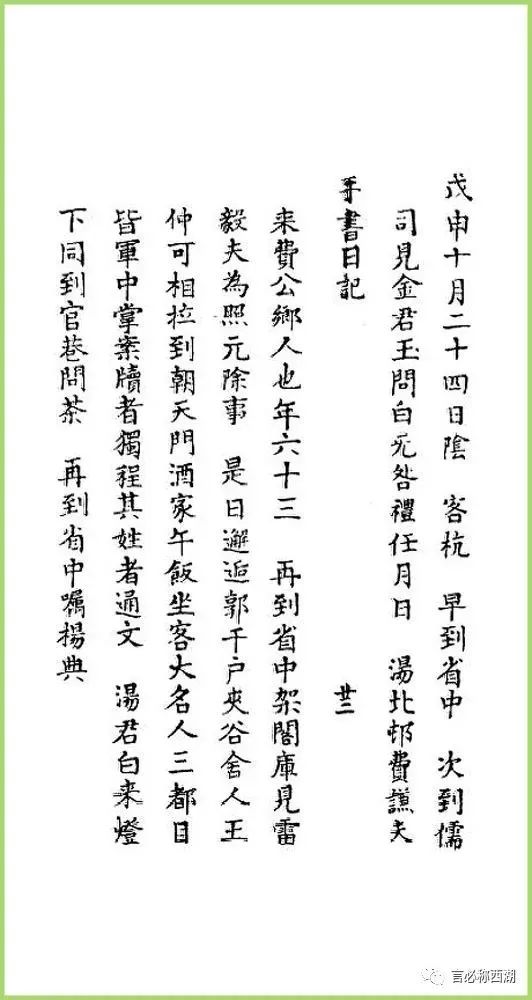 戊申十月二十四日陰　客杭　早到省中　次到儒
司見金君玉問白无咎禮任月日　湯北邨費謙夫
手書日記　廿三
来費公鄉人也年六十三　再到省中架閣庫見雷
毅夫為照元除事　是日邂逅郭千户夾谷舍人王
仲可相拉到朝天門酒家午飯坐客大名人三都目
皆軍中掌案牘者獨程其姓者通文　湯君白来燈
下同到官巷問茶　再到省中囑楊典
言必称西湖